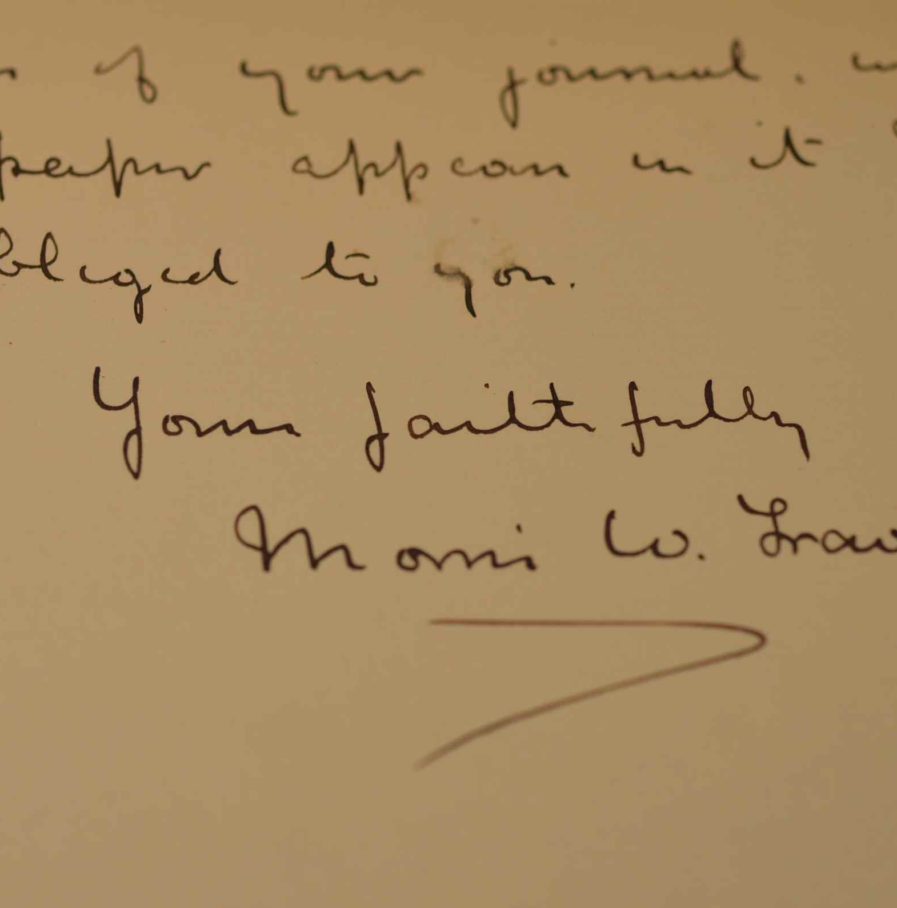 of your journal.
paper appear in it
bliged to you.
Yours faithfully
Morris W. Trav